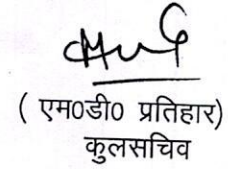 ( एम0डी0 प्रतिहार)
कुलसचिव